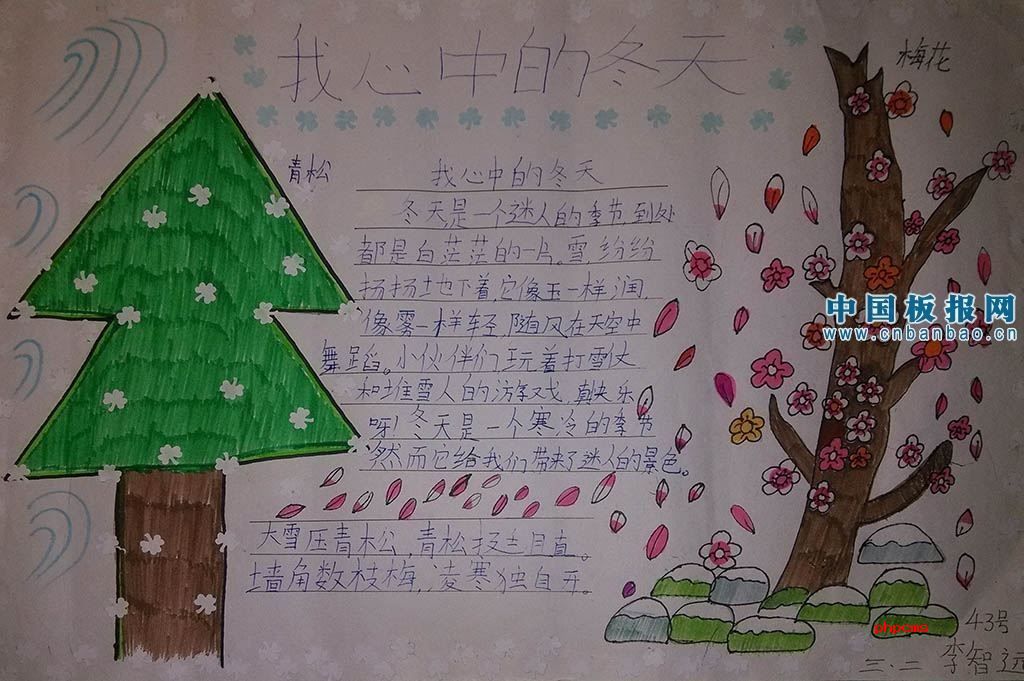 我心中的冬天
梅花
青松
我心中的冬天
冬天是一个迷人的季节到处
都是白茫茫的一片。雪,纷纷
扬扬地下着,它像玉一样润,
像雾一样轻,随风在天空中
舞蹈。小伙伴们玩着打雪仗
和堆雪人的游戏,真快乐
呀!冬天是一个寒冷的季节
然而它给我们带来了迷人的景色。
大雪压青松,青松挺且直。
墙角数枝梅,凌寒独自开。
中国板报网
www.cnbanbao.cn
phpcms
43号
三.二 李智远